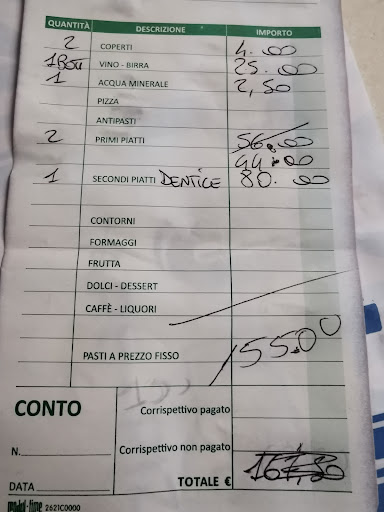 QUANTITÀ DESCRIZIONE IMPORTO
2 COPERTI 4.00
1 Bott VINO - BIRRA 25.00
1 ACQUA MINERALE 2,50
PIZZA
ANTIPASTI
2 PRIMI PIATTI 56.00
44.00
1 SECONDI PIATTI DENTICE 80.00
CONTORNI
FORMAGGI
FRUTTA
DOLCI - DESSERT
CAFFÈ - LIQUORI
155.00
PASTI A PREZZO FISSO
CONTO
Corrispettivo pagato
N. Corrispettivo non pagato
DATA TOTALE € 167,50
2621C0000